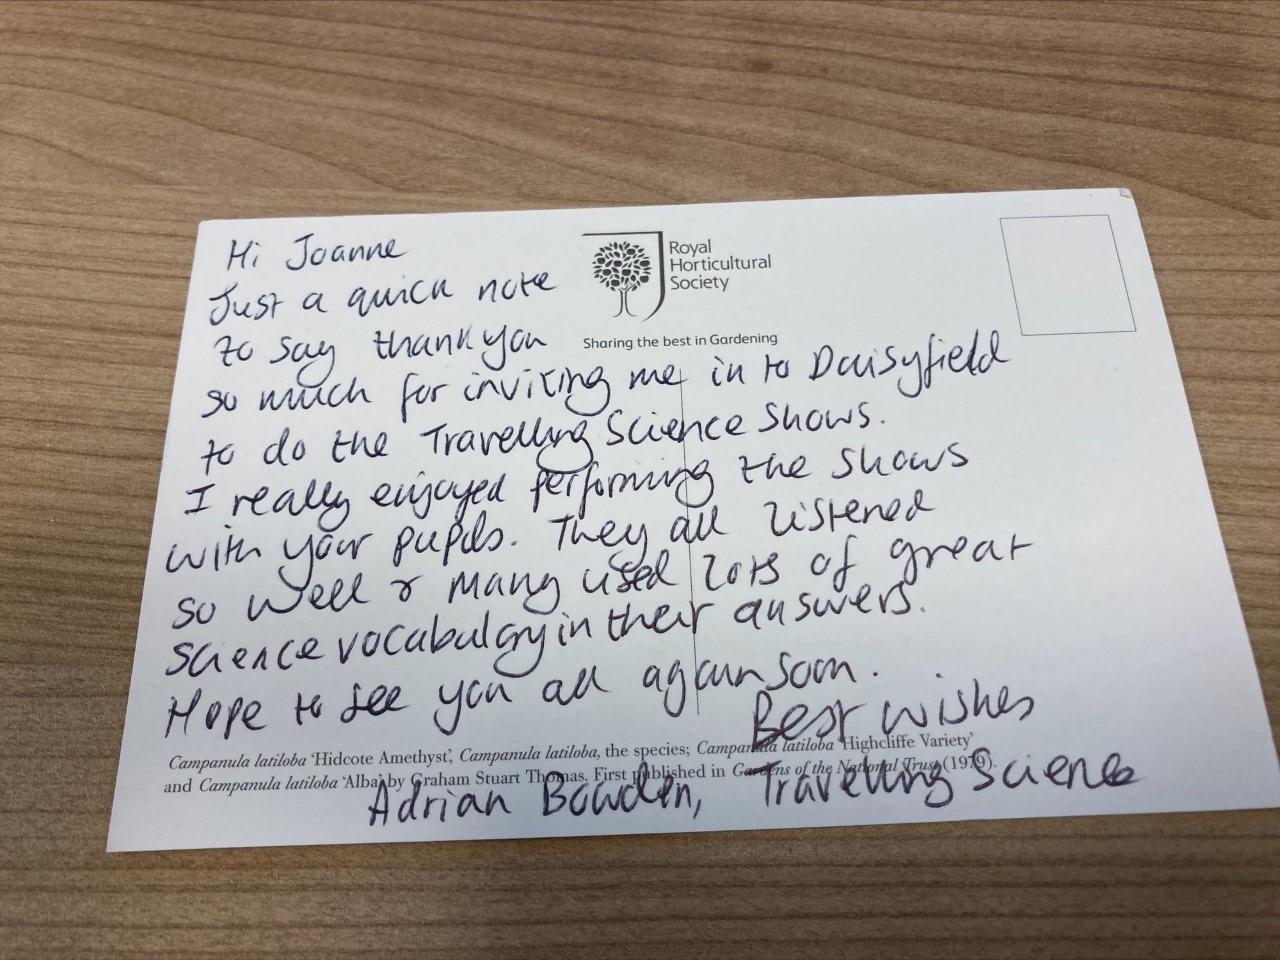 Hi Joanne
Just a quick note
to say thank you
so much for inviting me in to Daisyfield
to do the Travelling Science Shows.
I really enjoyed performing the shows
with your pupils. They all listened
so well & many used lots of great
science vocabulary in their answers.
Hope to see you all again soon.
Best wishes
Adrian Bowden, Travelling Science
Royal
Horticultural
Society
Sharing the best in Gardening
Campanula latiloba ‘Hidcote Amethyst’, Campanula latiloba, the species; Campanula latiloba ‘Highcliffe Variety’
and Campanula latiloba ‘Alba’ by Graham Stuart Thomas. First published in Gardens of the National Trust (1979).